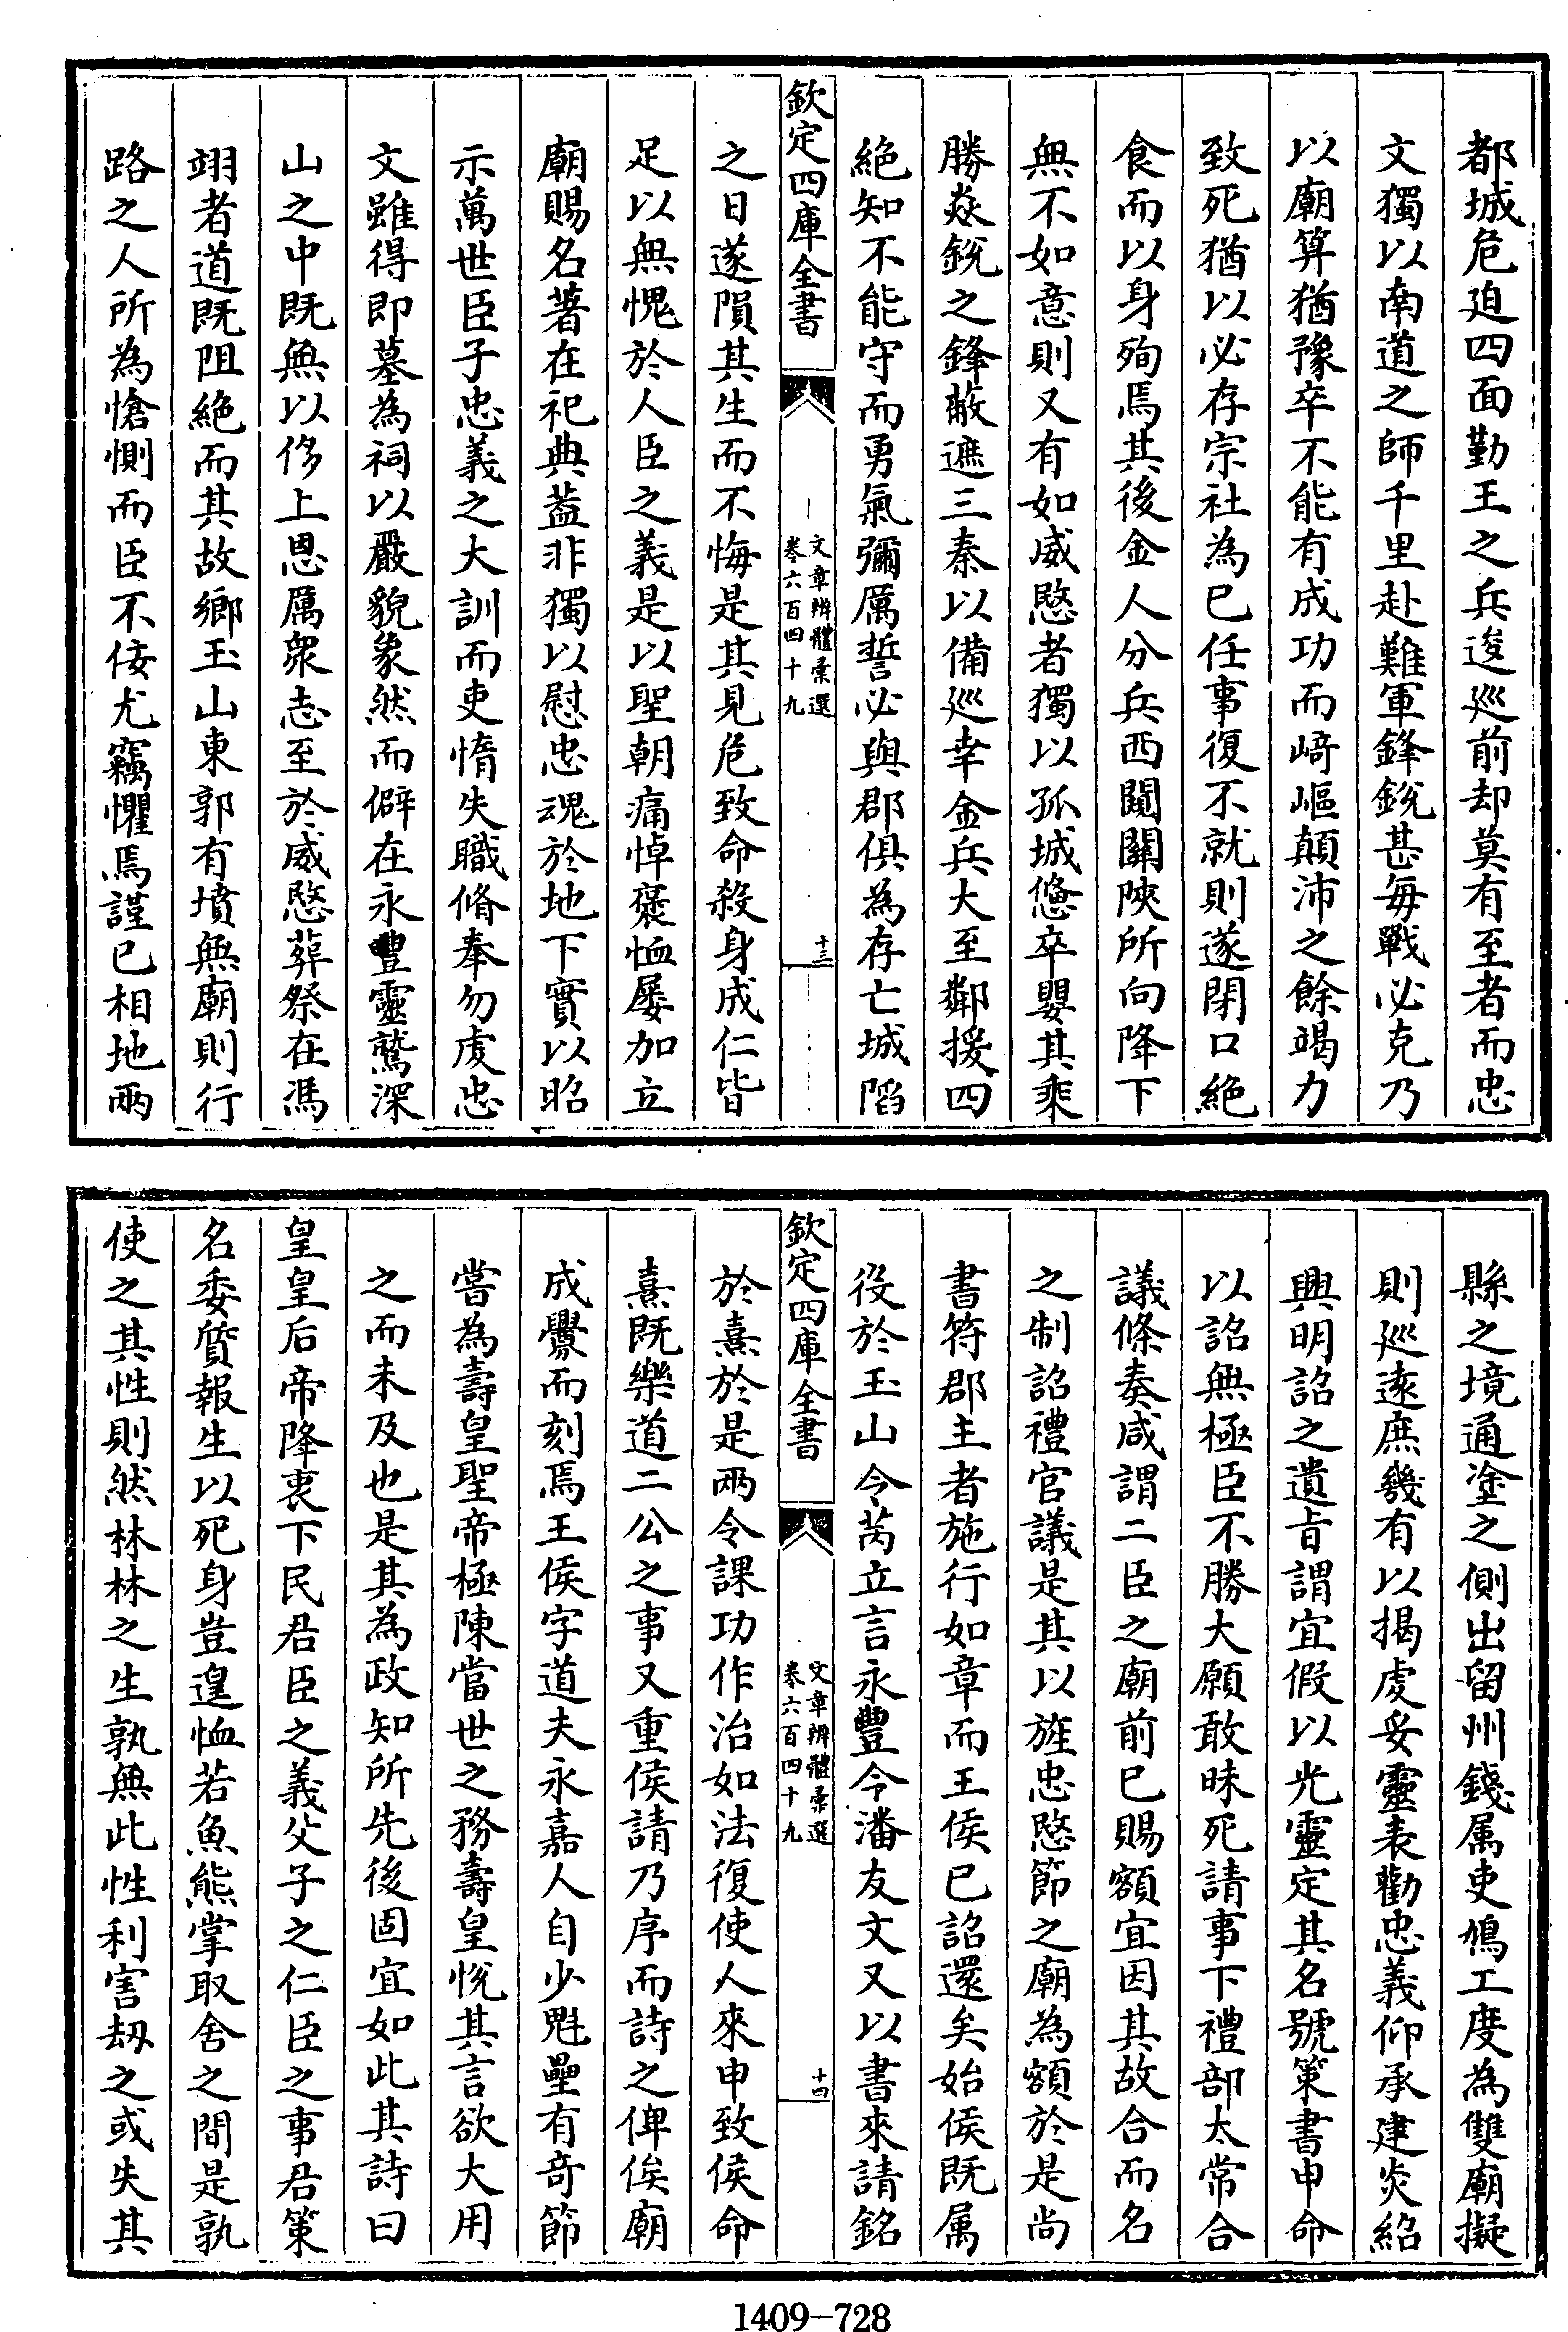 都城危迫四面勤王之兵逡巡前却莫有至者而忠
文獨以南道之師千里赴難軍鋒銳甚每戰必克乃
以廟算猶豫卒不能有成功而﨑嶇顛沛之餘竭力
致死猶以必存宗社為已任事復不就則遂閉口絶
食而以身殉焉其後金人分兵西闖關陜所向降下
無不如意則又有如威愍者獨以孤城憊卒嬰其乘
勝焱銳之鋒蔽遮三秦以備巡幸金兵大至鄰援四
絶知不能守而勇氣彌厲誓必與郡俱為存亡城陷
欽定四庫全書
文章辨體彙選
卷六百四十九
十三
之日遂隕其生而不悔是其見危致命殺身成仁皆
足以無愧於人臣之義是以聖朝痛悼褒恤屡加立
廟賜名著在祀典葢非獨以慰忠魂於地下實以昭
示萬世臣子忠義之大訓而吏惰失職脩奉勿虔忠
文雖得即墓為祠以嚴貌象然而僻在永豐靈鷲深
山之中既無以侈上恩厲衆志至於威愍葬祭在馮
翊者道既阻絶而其故鄉玉山東郭有墳無廟則行
路之人所為愴惻而臣不佞尤竊懼焉謹已相地兩
縣之境通塗之側出留州錢属吏鳩工度為雙廟擬
則巡逺庶幾有以揭虔妥靈表勸忠義仰承建炎紹
興明詔之遺㫖謂宜假以光靈定其名號策書申命
以詔無極臣不勝大願敢昧死請事下禮部太常合
議條奏咸謂二臣之廟前已賜額宜因其故合而名
之制詔禮官議是其以旌忠愍節之廟為額於是尚
書符郡主者施行如章而王侯已詔還矣始侯既属
役於玉山令芮立言永豐令潘友文又以書來請銘
欽定四庫全書
文章辨體彙選
卷六百四十九
十四
於熹於是兩令課功作治如法復使人來申致侯命
熹既樂道二公之事又重侯請乃序而詩之俾俟廟
成釁而刻焉王侯字道夫永嘉人自少魁壘有奇節
嘗為壽皇聖帝極陳當世之務壽皇悅其言欲大用
之而未及也是其為政知所先後固宜如此其詩曰
皇皇后帝降衷下民君臣之義父子之仁臣之事君策
名委質報生以死身豈遑恤若魚熊掌取舍之間是孰
使之其性則然林林之生孰無此性利害刼之或失其
1409-728